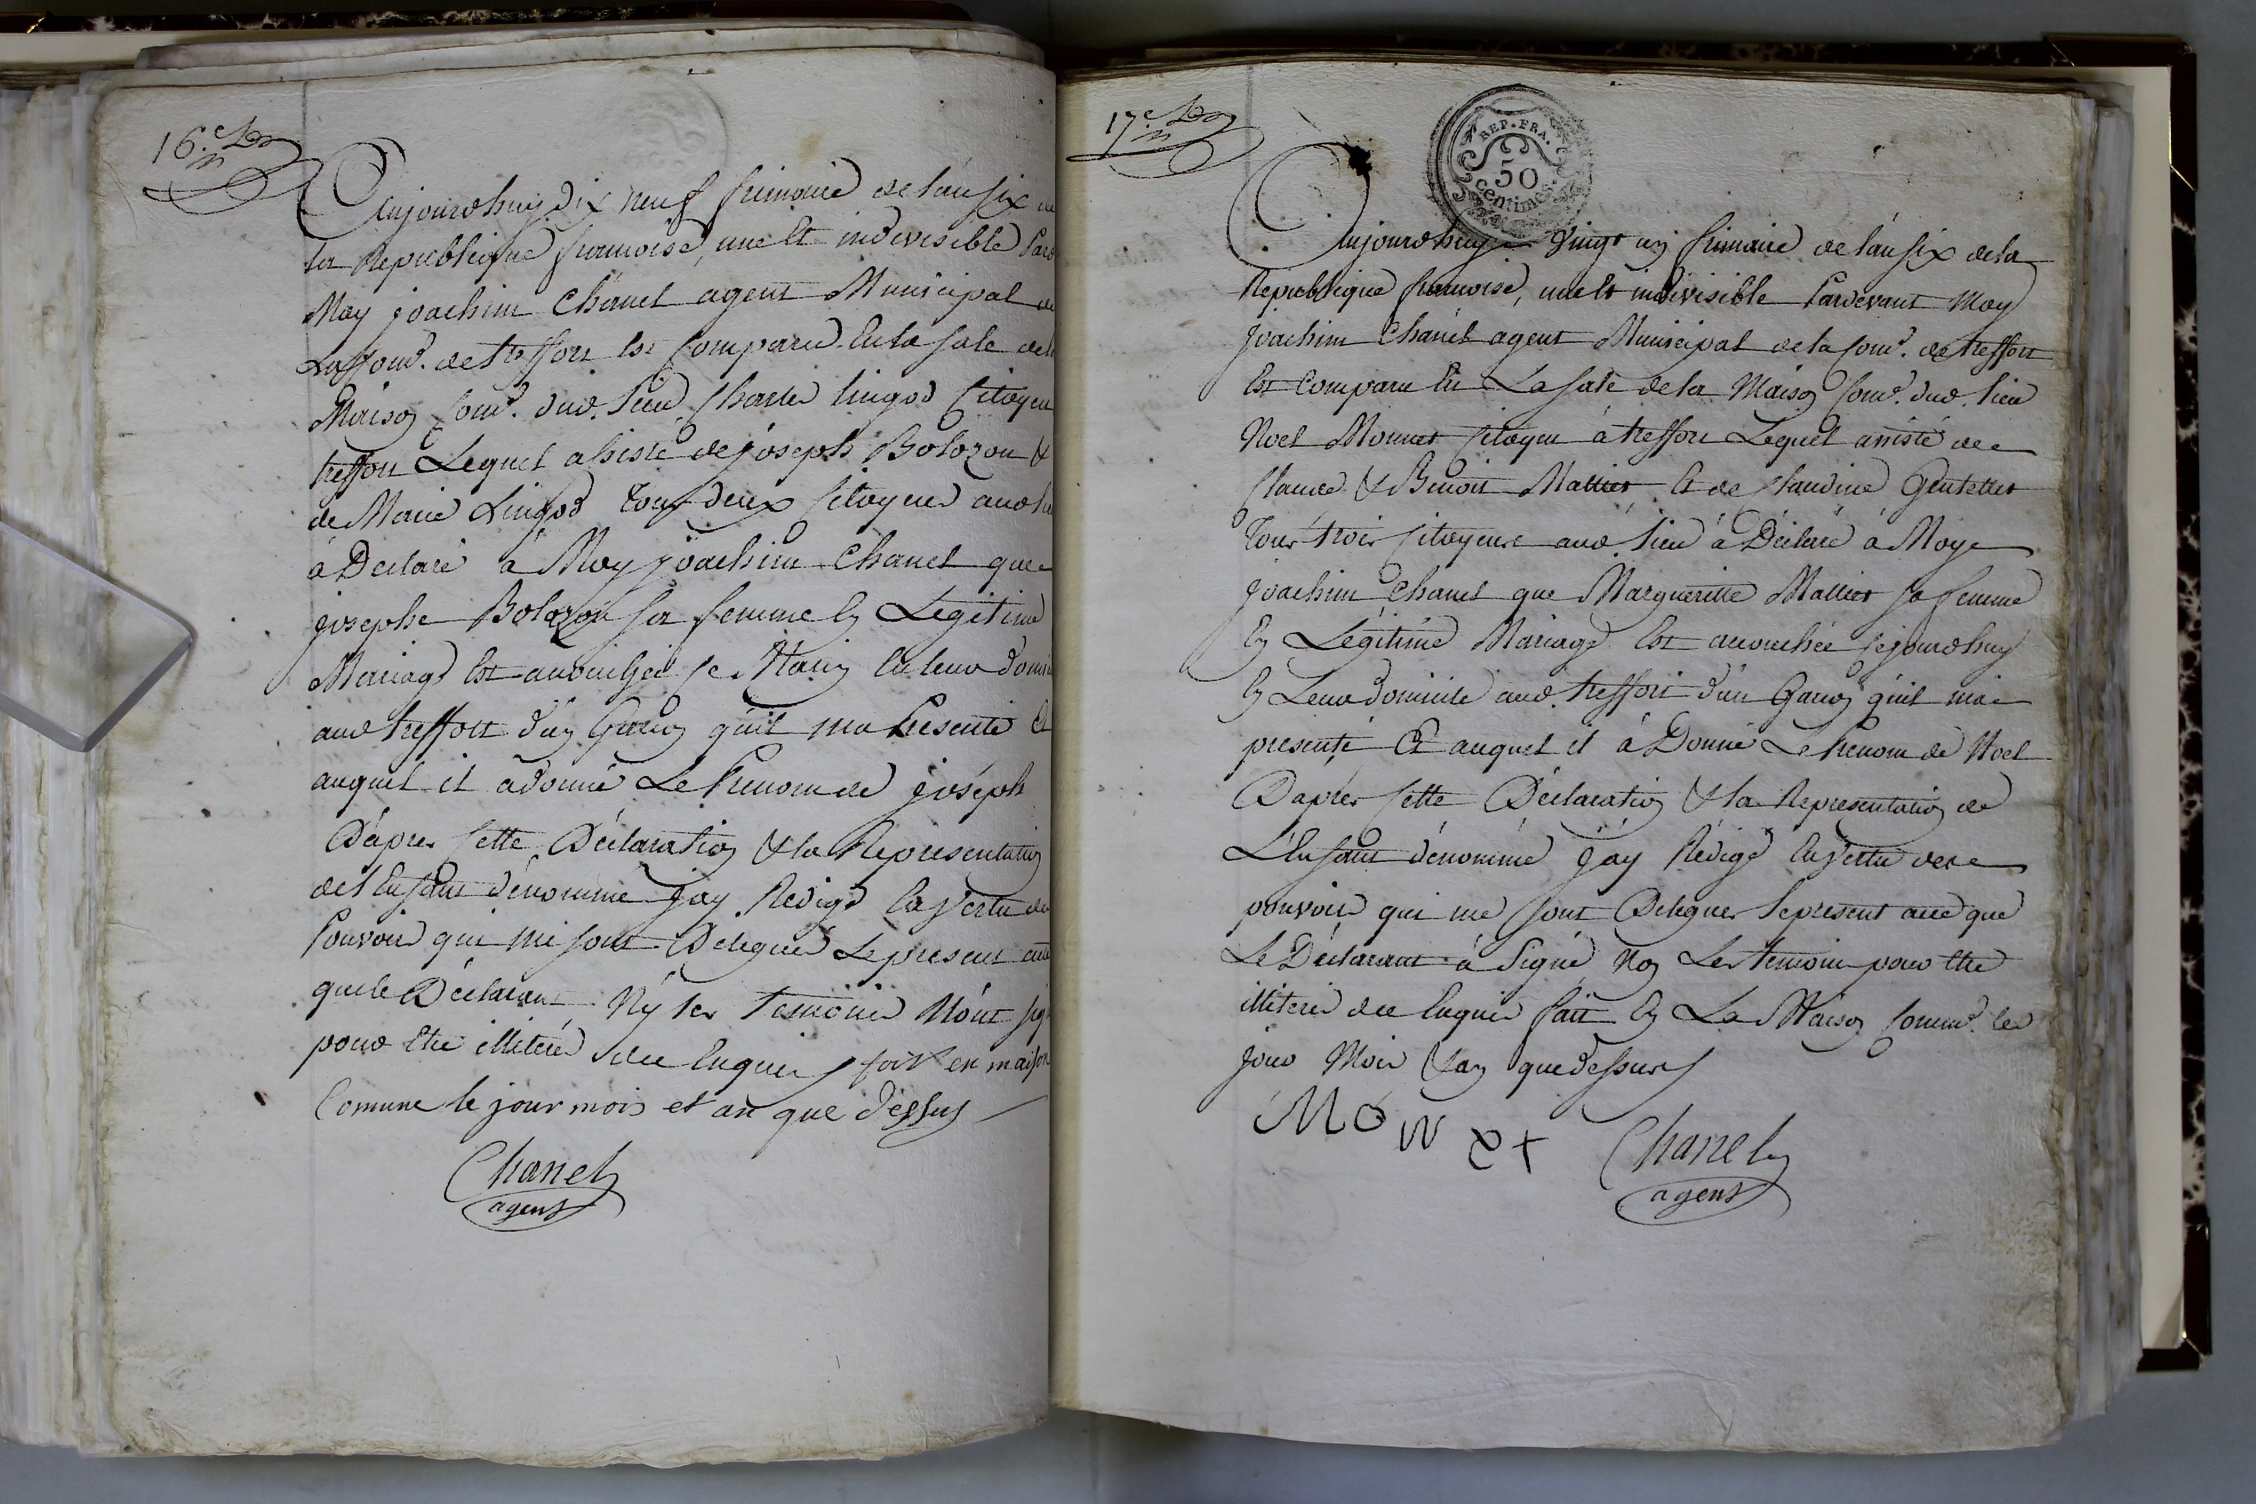 16.e
Aujourdhuy dix neuf frimaire de l'an six de
la Republique francoise, une et indivisible Pard
Moy joachim Chanel agent Municipal de
La Com.e de treffort est Comparu En la sale de la
Maison Com.e dud. lieu Charles lingod Citoyen
treffort Lequel assisté de joseph Bolozon &
de Marie Lingod Tous deux Citoyens aud lieu
à Déclaré à Moy joachim Chanel que
josephe Bolozon sa femme En Legitime
Mariage est accouchée ce Matin en leur domicile
aud treffort d'un Garcon qu'il ma Presenté Et
auquel il a donné Le Prenom de joséph
D'apres Cette Déclaration & la Representation
de l'Enfant dénommé jay Redigé En Vertu des
Pouvoirs qui me sont Delegués Le present acte
que le Déclarant Ny les temoins N'ont signé
pour Etre illiterés de ce Enquis fait en maison
Comune le jour mois et an que dessus
Chanel
agent
17.e
REP. FRA.
50
centimes.
Aujourdhuy Vingt un frimaire de l'an six de la
Republique francoise, une et indivisible Pardevant Moy
Joachim Chanel agent Municipal de la Com.e de treffort
Est Comparu En La sale de la Maison Com.e dud. lieu
Noel Monnet Citoyen à treffort Lequel assisté de
Claude & Benoit Mattiet Et de Claudine Gentellet
Tous trois Citoyens aud. lieu à Déclaré à Moy
joachim Chanel que Margueritte Mattiet sa femme
En Légitime Mariage Est accouchée Cejourdhuy
En Leur domicile aud. treffort d'un Garcon qu'il ma
presenté Et auquel il à Donné Le Prenom de Noel
D'aprés Cette Déclaration & la Representation de
L'Enfant dénommé jay Rédigé En Vertu des
pouvoirs qui me sont Delegués le present acte que
Le Déclarant à Signé Non Les temoins pour Etre
illiterés de ce Enquis fait En La Maison Comm.e les
jour Mois & an que dessus
MONET
Chanel
agent